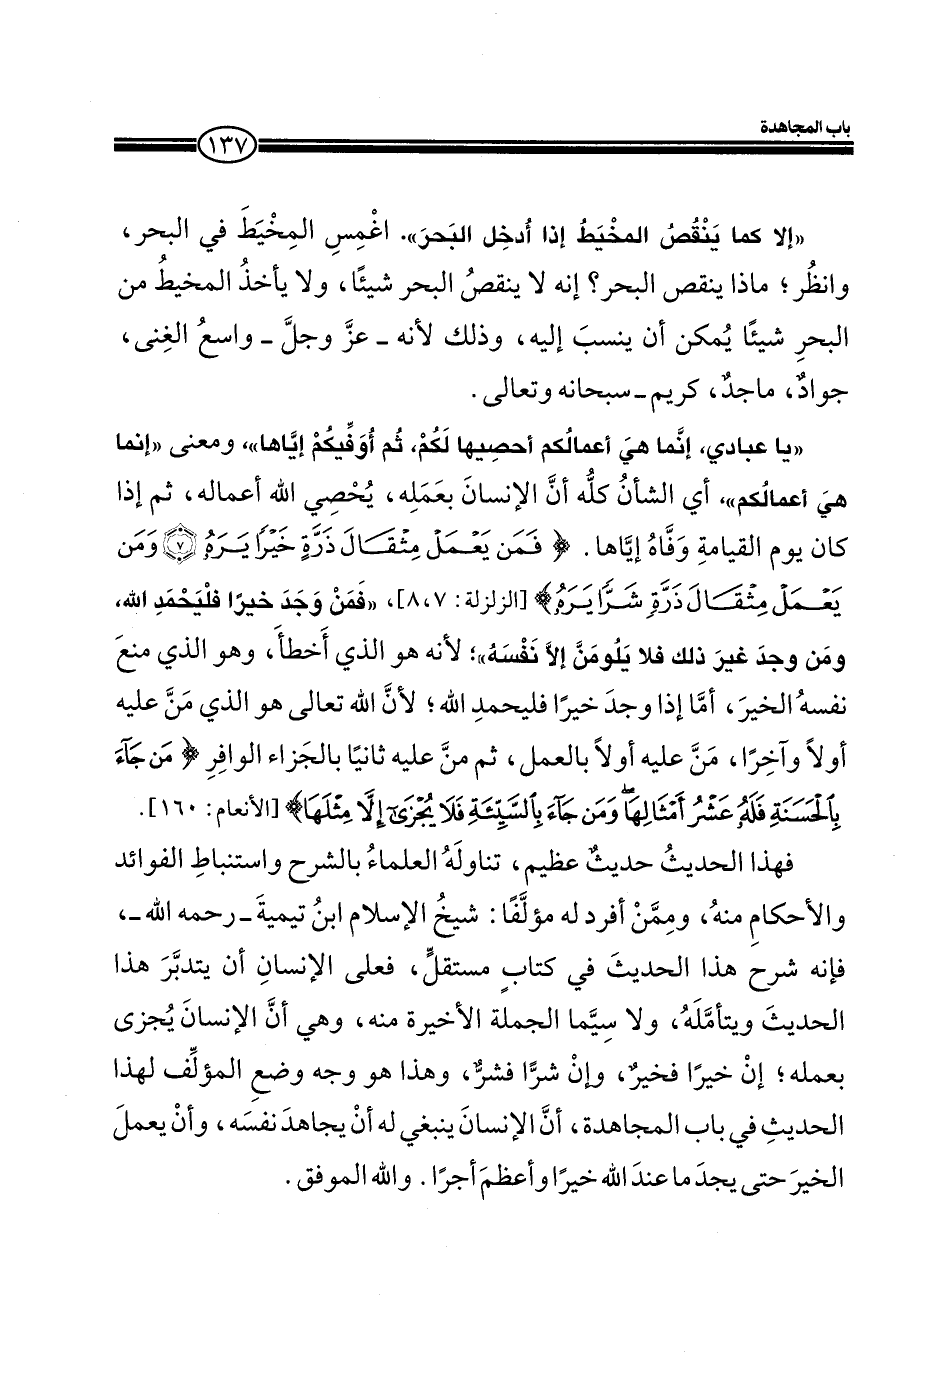 باب المجاهدة
١٣٧
«إلا كما يَنْقُصُ المخْيَطُ إذا أُدخِل البَحرَ». اغْمِسِ المِخْيَطَ في البحر،
وانظُر؛ ماذا ينقص البحر؟ إنه لا ينقصُ البحر شيئًا، ولا يأخذُ المخيطُ من
البحرِ شيئًا يُمكن أن ينسبَ إليه، وذلك لأنه ـ عزَّ وجلَّ ـ واسعُ الغِنى،
جوادٌ، ماجدٌ، كريم ـ سبحانه وتعالى.
«يا عبادي، إنَّما هيَ أعمالُكم أحصِيها لَكُمْ، ثُم أُوَفِّيكُمْ إيَّاها»، ومعنى «إنما
هيَ أعمالُكم»، أي الشأنُ كلُّه أنَّ الإنسان بعَمَلِه، يُحْصِي الله أعماله، ثم إذا
كان يوم القيامةِ وَفَّاهُ إيَّاها. ﴿ فَمَن يَعْمَلْ مِثْقَالَ ذَرَّةٍ خَيْرًا يَرَهُ ۝٧ وَمَن
يَعْمَلْ مِثْقَالَ ذَرَّةٍ شَرًّا يَرَهُ﴾ [الزلزلة: ٨،٧]، «فَمَنْ وَجَدَ خيرًا فلْيَحْمَدِ الله،
ومَن وجدَ غيرَ ذلك فلا يَلُومَنَّ إلاَّ نَفْسَهُ»؛ لأنه هو الذي أخطأ، وهو الذي منعَ
نفسهُ الخيرَ، أمَّا إذا وجدَ خيرًا فليحمدِ الله؛ لأنَّ الله تعالى هو الذي مَنَّ عليه
أولاً وآخِرًا، مَنَّ عليه أولاً بالعمل، ثم منَّ عليه ثانيًا بالجَزاء الوافرِ ﴿ مَن جَآءَ
بِالْحَسَنَةِ فَلَهُ عَشْرُ أَمْثَالِهَا ۖ وَمَن جَآءَ بِالسَّيِّئَةِ فَلَا يُجْزَىٰٓ إِلَّا مِثْلَهَا﴾ [الأنعام: ١٦٠].
فهذا الحديثُ حديثٌ عظيم، تناولَهُ العلماءُ بالشرح واستنباطِ الفوائد
والأحكامِ منهُ، وممَّنْ أفرد له مؤلَّفًا: شيخُ الإسلام ابنُ تيميةَ ـ رحمه الله ـ،
فإنه شرح هذا الحديثَ في كتابٍ مستقلٍّ، فعلى الإنسانِ أن يتدبَّرَ هذا
الحديثَ ويتأمَّلَهُ، ولا سِيَّما الجملة الأخيرة منه، وهي أنَّ الإنسانَ يُجزى
بعمله؛ إنْ خيرًا فخيرٌ، وإنْ شرًّا فشرٌّ، وهذا هو وجه وضعِ المؤلِّف لهذا
الحديثِ في باب المجاهدة، أنَّ الإنسانَ ينبغي له أنْ يجاهدَ نفسَه، وأنْ يعملَ
الخيرَ حتى يجدَ ما عندَ الله خيرًا وأعظمَ أجرًا. والله الموفق.